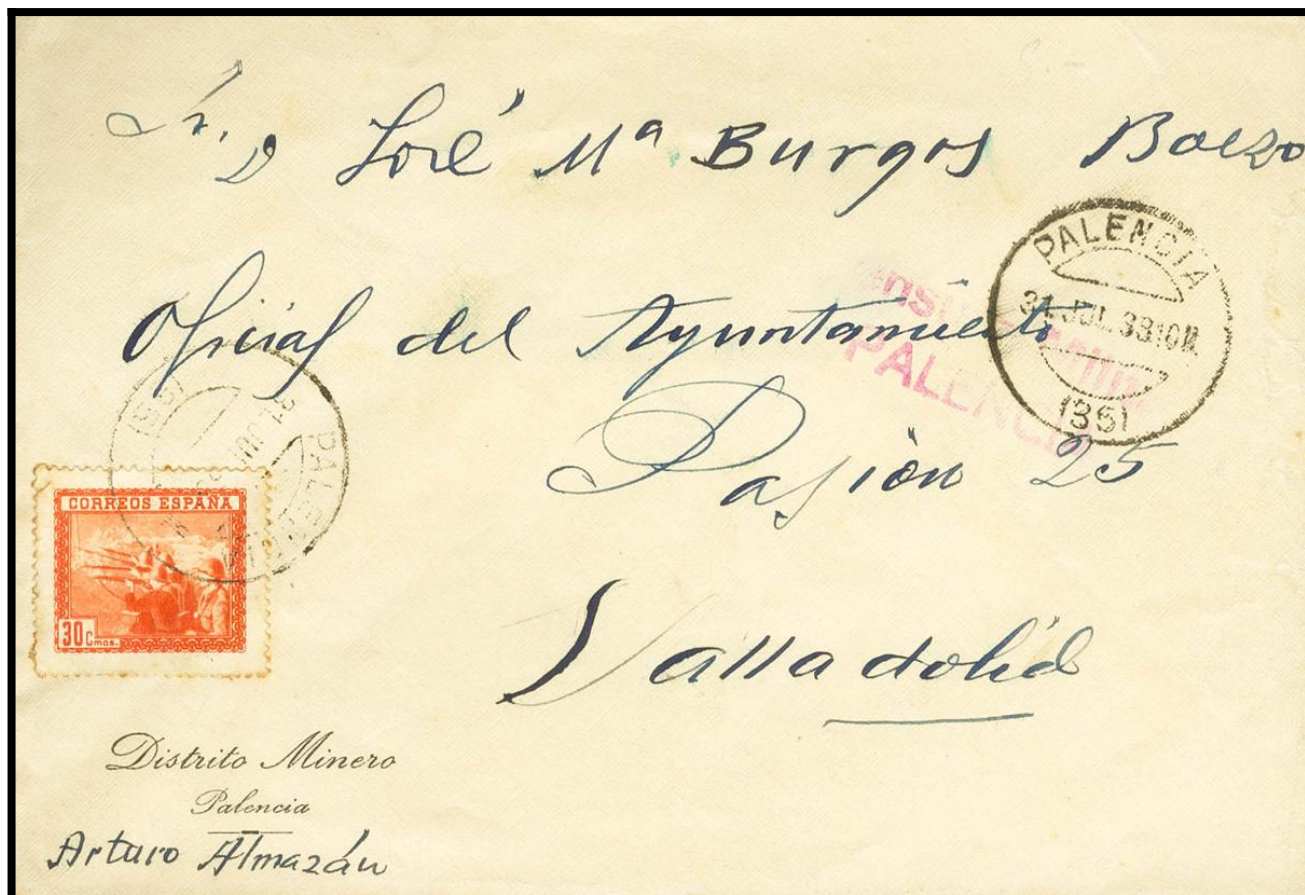 Sr. D José Mª Burgos Boezo
Oficial del Ayuntamiento
Pasión 25
Valladolid
PALENCIA
31 JUL. 38 10M
(35)
PALENCIA
PALENCIA
31 JUL
(35)
CORREOS ESPAÑA
30 Cmos.
Distrito Minero
Palencia
Arturo Almazán